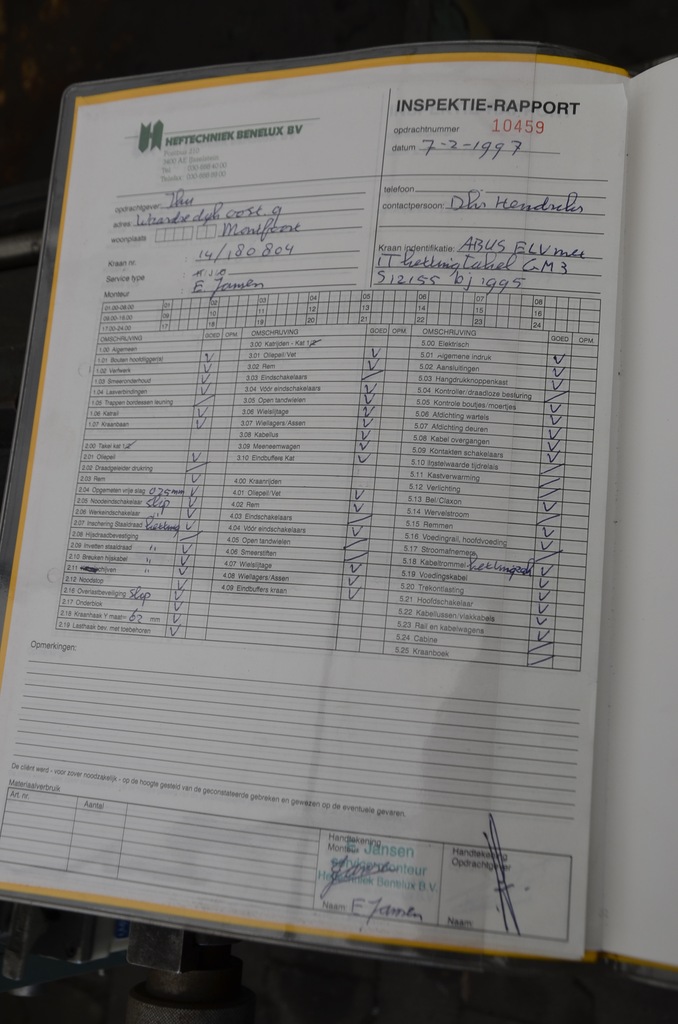 HEFTECHNIEK BENELUX BV
INSPEKTIE-RAPPORT
opdrachtnummer 10459
datum 7-2-1997
telefoon
contactpersoon: Dhr Hendriks
opdrachtgever:
adres
woonplaats Montfoort
Kraan nr. : 14/180804
Service type :
Monteur : E Jansen
Kraan indentifikatie: ABUS ELV met
1T ketting takel GM3
S12155 bj 1995
01.00-08.00 01 02 03 04 05 06 07 08
09.00-16.00 09 10 11 12 13 14 15 16
17.00-24.00 17 18 19 20 21 22 23 24
OMSCHRIJVING GOED OPM.
1.00 Algemeen
1.01 Bouten hoofdligger(s)
1.02 Verfwerk
1.03 Smeeronderhoud
1.04 Lasverbindingen
1.05 Trappen bordessen leuning
1.06 Katrail
1.07 Kraanbaan
2.00 Takel kat 1/2
2.01 Oliepeil
2.02 Draadgeleider drukring
2.03 Rem
2.04 Opgemeten vrije slag 0,75 mm
2.05 Noodeindschakelaar slip
2.06 Werkeindschakelaar "
2.07 Inschering Staaldraad ketting
2.08 Hijsdraadbevestiging
2.09 Invetten staaldraad "
2.10 Breuken hijskabel "
2.11 schijven "
2.12 Noodstop
2.16 Overlastbeveiliging slip
2.17 Onderblok
2.18 Kraanhaak Y maat= 62 mm
2.19 Lasthaak bev. met toebehoren
OMSCHRIJVING GOED OPM.
3.00 Katrijden - Kat 1/2
3.01 Oliepeil/Vet
3.02 Rem
3.03 Eindschakelaars
3.04 Vóór eindschakelaars
3.05 Open tandwielen
3.06 Wielslijtage
3.07 Wiellagers/Assen
3.08 Kabellus
3.09 Meeneemwagen
3.10 Eindbuffers Kat
4.00 Kraanrijden
4.01 Oliepeil/Vet
4.02 Rem
4.03 Eindschakelaars
4.04 Vóór eindschakelaars
4.05 Open tandwielen
4.06 Smeerstiften
4.07 Wielslijtage
4.08 Wiellagers/Assen
4.09 Eindbuffers kraan
OMSCHRIJVING GOED OPM.
5.00 Elektrisch
5.01 Algemene indruk
5.02 Aansluitingen
5.03 Hangdrukknoppenkast
5.04 Kontroller/draadloze besturing
5.05 Kontrole boutjes/moertjes
5.06 Afdichting wartels
5.07 Afdichting deuren
5.08 Kabel overgangen
5.09 Kontakten schakelaars
5.10 Instelwaarde tijdrelais
5.11 Kastverwarming
5.12 Verlichting
5.13 Bel/Claxon
5.14 Wervelstroom
5.15 Remmen
5.16 Voedingrail, hoofdvoeding
5.17 Stroomafnemers
5.18 Kabeltrommel
5.19 Voedingskabel
5.20 Trekontlasting
5.21 Hoofdschakelaar
5.22 Kabellussen/vlakkabels
5.23 Rail en kabelwagens
5.24 Cabine
5.25 Kraanboek
Opmerkingen:
De cliënt werd - voor zover noodzakelijk - op de hoogte gesteld van de geconstateerde gebreken en gewezen op de eventuele gevaren.
Materiaalverbruik
Art. nr. Aantal
Handtekening Monteur
E Jansen
Servicemonteur
Heftechniek Benelux B.V.
Naam: E Jansen
Handtekening
Opdrachtgever
Naam: